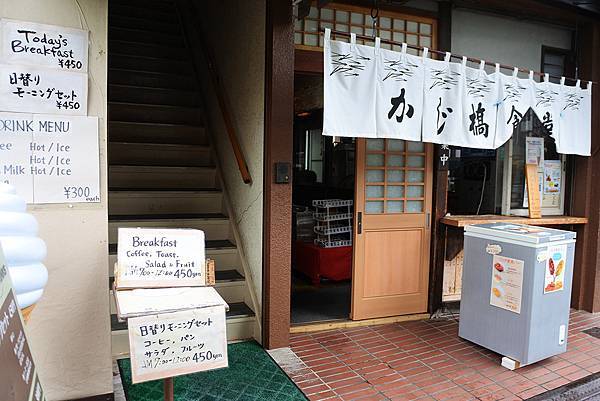 Today's
Breakfast
¥450
日替り
モーニングセット
¥450
DRINK MENU
Hot / Ice
Hot / Ice
Milk Hot / Ice
¥300
each
Breakfast
Coffee, Toast,
Salad & Fruit
AM 7:00~12:00 450yen
日替りモーニングセット
コーヒー・パン
サラダ・フルーツ
AM7:00~12:00 450yen
かじ橋食堂
業中